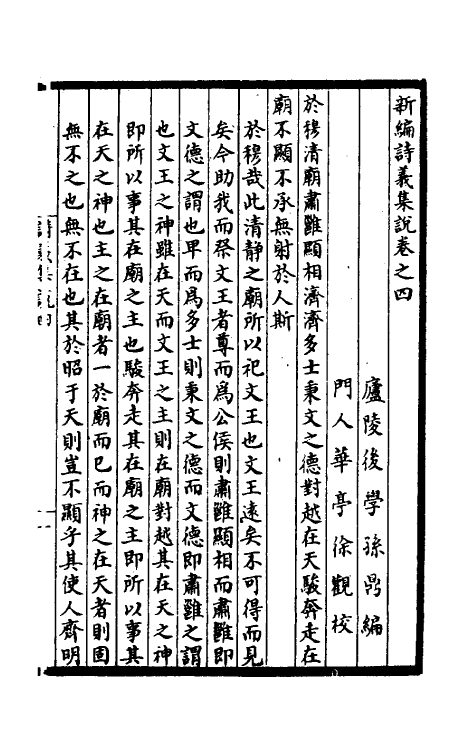 新編詩義集說卷之四
廬陵後學孫鼎編
門人華亭徐觀校
於穆清廟肅雝顯相濟濟多士秉文之德對越在天駿奔走在
廟不顯不承無射於人斯
於穆哉此清静之廟所以祀文王也文王遠矣不可得而見
矣今助我而祭文王者尊而爲公侯則肅雝顯相而肅雝即
文德之謂也卑而爲多士則秉文之德而文德即肅雝之謂
也文王之神雖在天而文王之主則在廟對越其在天之神
即所以事其在廟之主也駿奔走其在廟之主即所以事其
在天之神也主之在廟者一於廟而已而神之在天者則固
無不之也無不在也其於昭于天則豈不顯乎其使人齊明